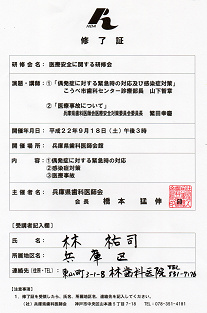 修了証
研修会名 医療安全に関する研修会
演題・講師：①「偶発症に対する緊急時の対応及び感染症対策」
こうべ市歯科センター診療部長 山下智章
②「医療事故について」
兵庫県歯科医師会医療安全対策委員会委員長
開催年月日：平成22年9月18日（土）午後3時
開催場所：兵庫県歯科医師会館
内容：①偶発症に対する緊急時の対応
②感染症対策
③医療事故
主催者名：兵庫県歯科医師会
会長 橋本猛伸
【受講者記入欄】
氏名：林 祐司
所属地区名：兵庫区
連絡先（住所・TEL）：東山町2-1-8 林歯科医院 TEL
531-7176
【注意事項】
1．修了証を受領したら、氏名、所属地区名、連絡先をご記入してください。
（社）兵庫県歯科医師会 神戸市中央区山本通5丁目7-18 TEL：078-351-4181